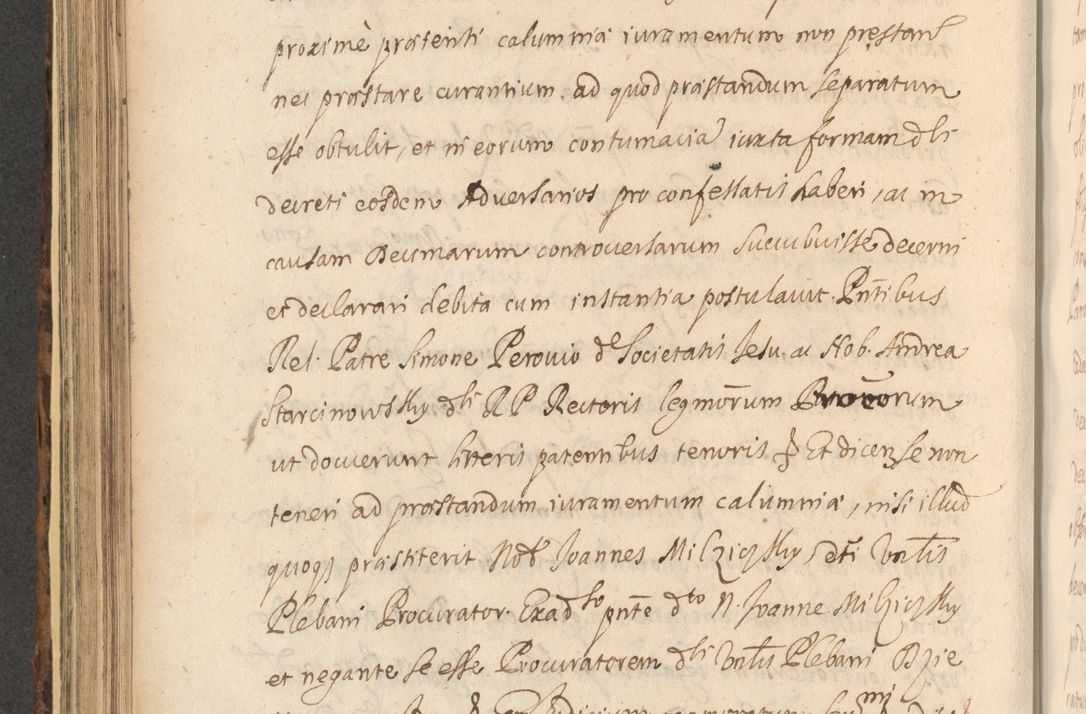 proximè præsenti calumniæ iuramentum non prestan̄
nec præstare curantium, ad quod præstandum separatum
esse obtulit, et in eorum contumacia iuxta formam dli
decreti eosdem Adversarios pro confessatis haberi, ac in
causam Decimarum controversarum succubuisse decerni
et declarari debita cum instantia postulavit. Pn̄tibus
Rel. Patre Simone Perovio de Societatis Jesu, ac Nob. Andrea
Starcinowsky dli RP Rectoris legm̄orum
ut docuerunt litteris patentibus tenoris Et dicen. se non
teneri ad præstandum iuramentum calumniæ, nisi illud
quoqz præstiterit Nob. Joannes Milzicjsky, dti Vn̄lis
Plebani Procurator. Exad so pn̄te dto N. Joanne Milzicjsky
et negante se esse Procuratorem dli Vn̄lis Plebani Bzie